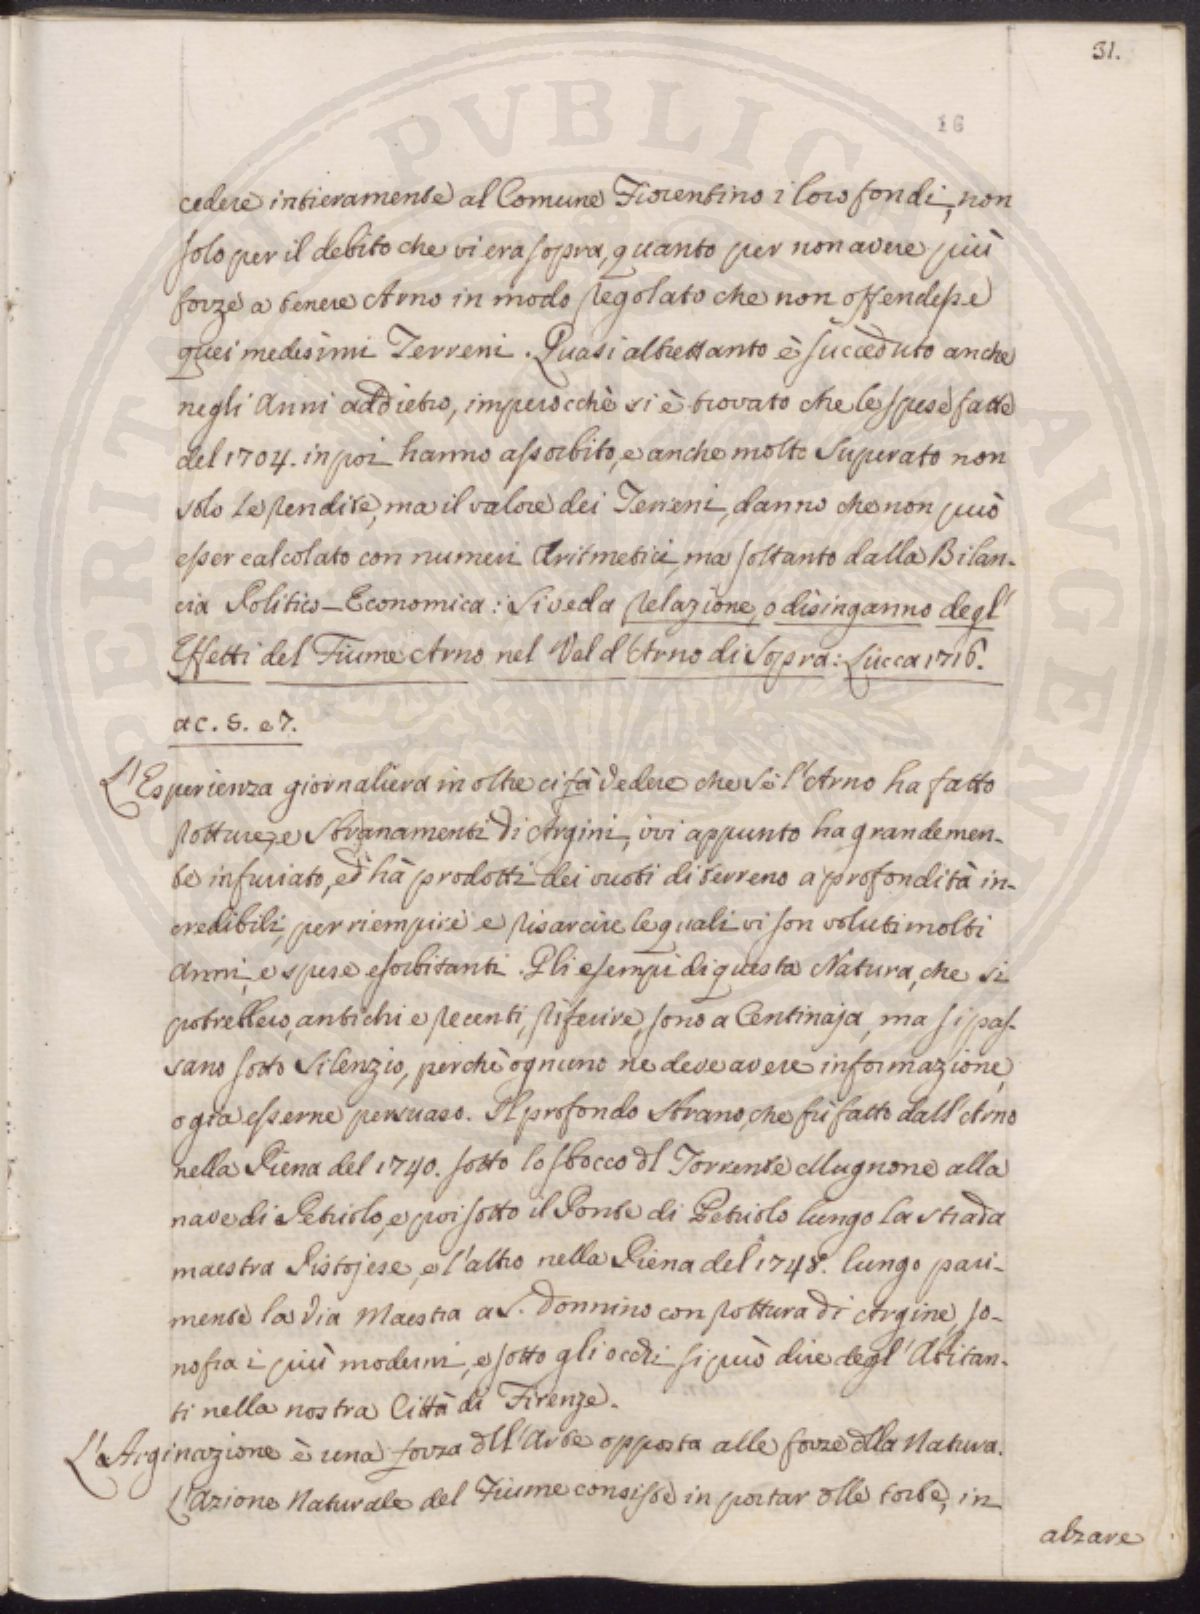 31.
16
cedere intieramente al Comune Fiorentino i loro fondi, non
solo per il debito che vi era sopra, quanto per non avere più
forze a tenere Arno in modo regolato che non offendesse
quei medesimi Terreni. Quasi altrettanto è succeduto anche
negli Anni addietro, imperocchè si è trovato che le spese fatte
del 1704. in poi hanno assorbito, e anche molto superato non
solo le rendite, ma il valore dei Terreni, danno che non può
esser calcolato con numeri Aritmetici, ma soltanto dalla Bilan-
cia Politico-Economica: Si veda Relazione, o disinganno degl'
Effetti del Fiume Arno nel Val d'Arno di Sopra: Lucca 1716.
a c. 5. e 7.
L'Esperienza giornaliera inoltre ci fà vedere che se l'Arno ha fatto
rotture, e stranamenti di Argini, ivi appunto ha grandemen-
te infuriato, ed hà prodotti dei vuoti di terreno a profondità in-
credibili, per riempire e risarcire le quali vi son voluti molti
Anni, e spese esorbitanti. Gli esempi di questa Natura, che si
potrebbero, antichi e recenti, riferire, sono a Centinaja, ma si pas-
sano sotto silenzio, perchè ognuno ne deve avere informazione,
o già esserne persuaso. Il profondo strano, che fu fatto dall'Arno
nella Piena del 1740. sotto lo sbocco dl Torrente Mugnone alla
nave di Petriolo, e poi sotto il Ponte di Petriolo lungo la strada
maestra Pistojese, e l'altro nella Piena del 1748. lungo pari-
mente la via Maestra a S. Donnino con rottura di Argine, so-
no fra i più moderni, e sotto gli occhi si può dire degl'Abitan-
ti nella nostra Città di Firenze.
L'Arginazione è una forza dll'Arte opposta alle forze dlla Natura.
L'Azione Naturale del Fiume consiste in portar dlle torbe, in
alzare